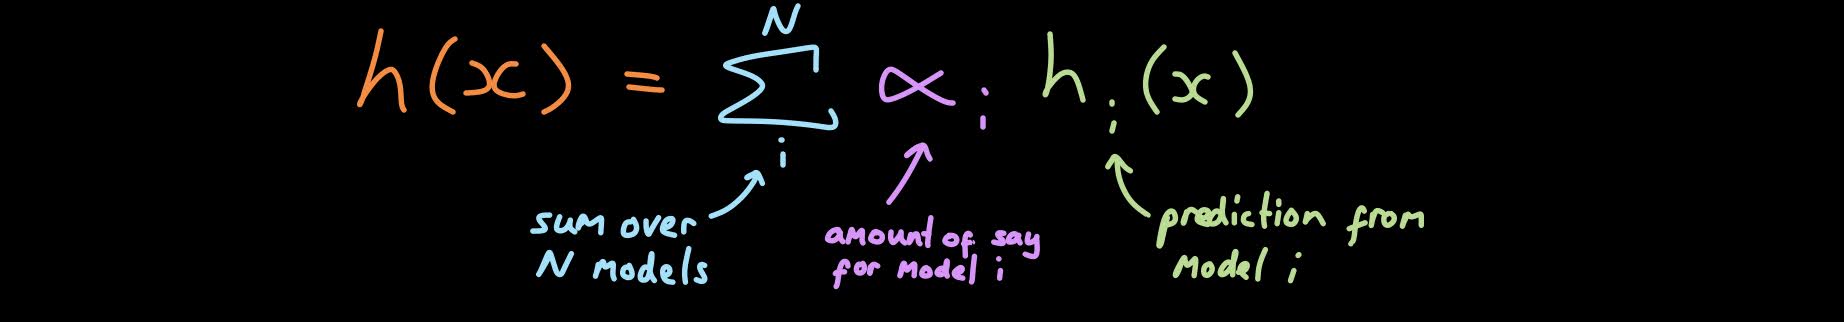 h(x) = Σ_i^N α_i h_i(x)
sum over
N models
amount of say
for model i
prediction from
model i